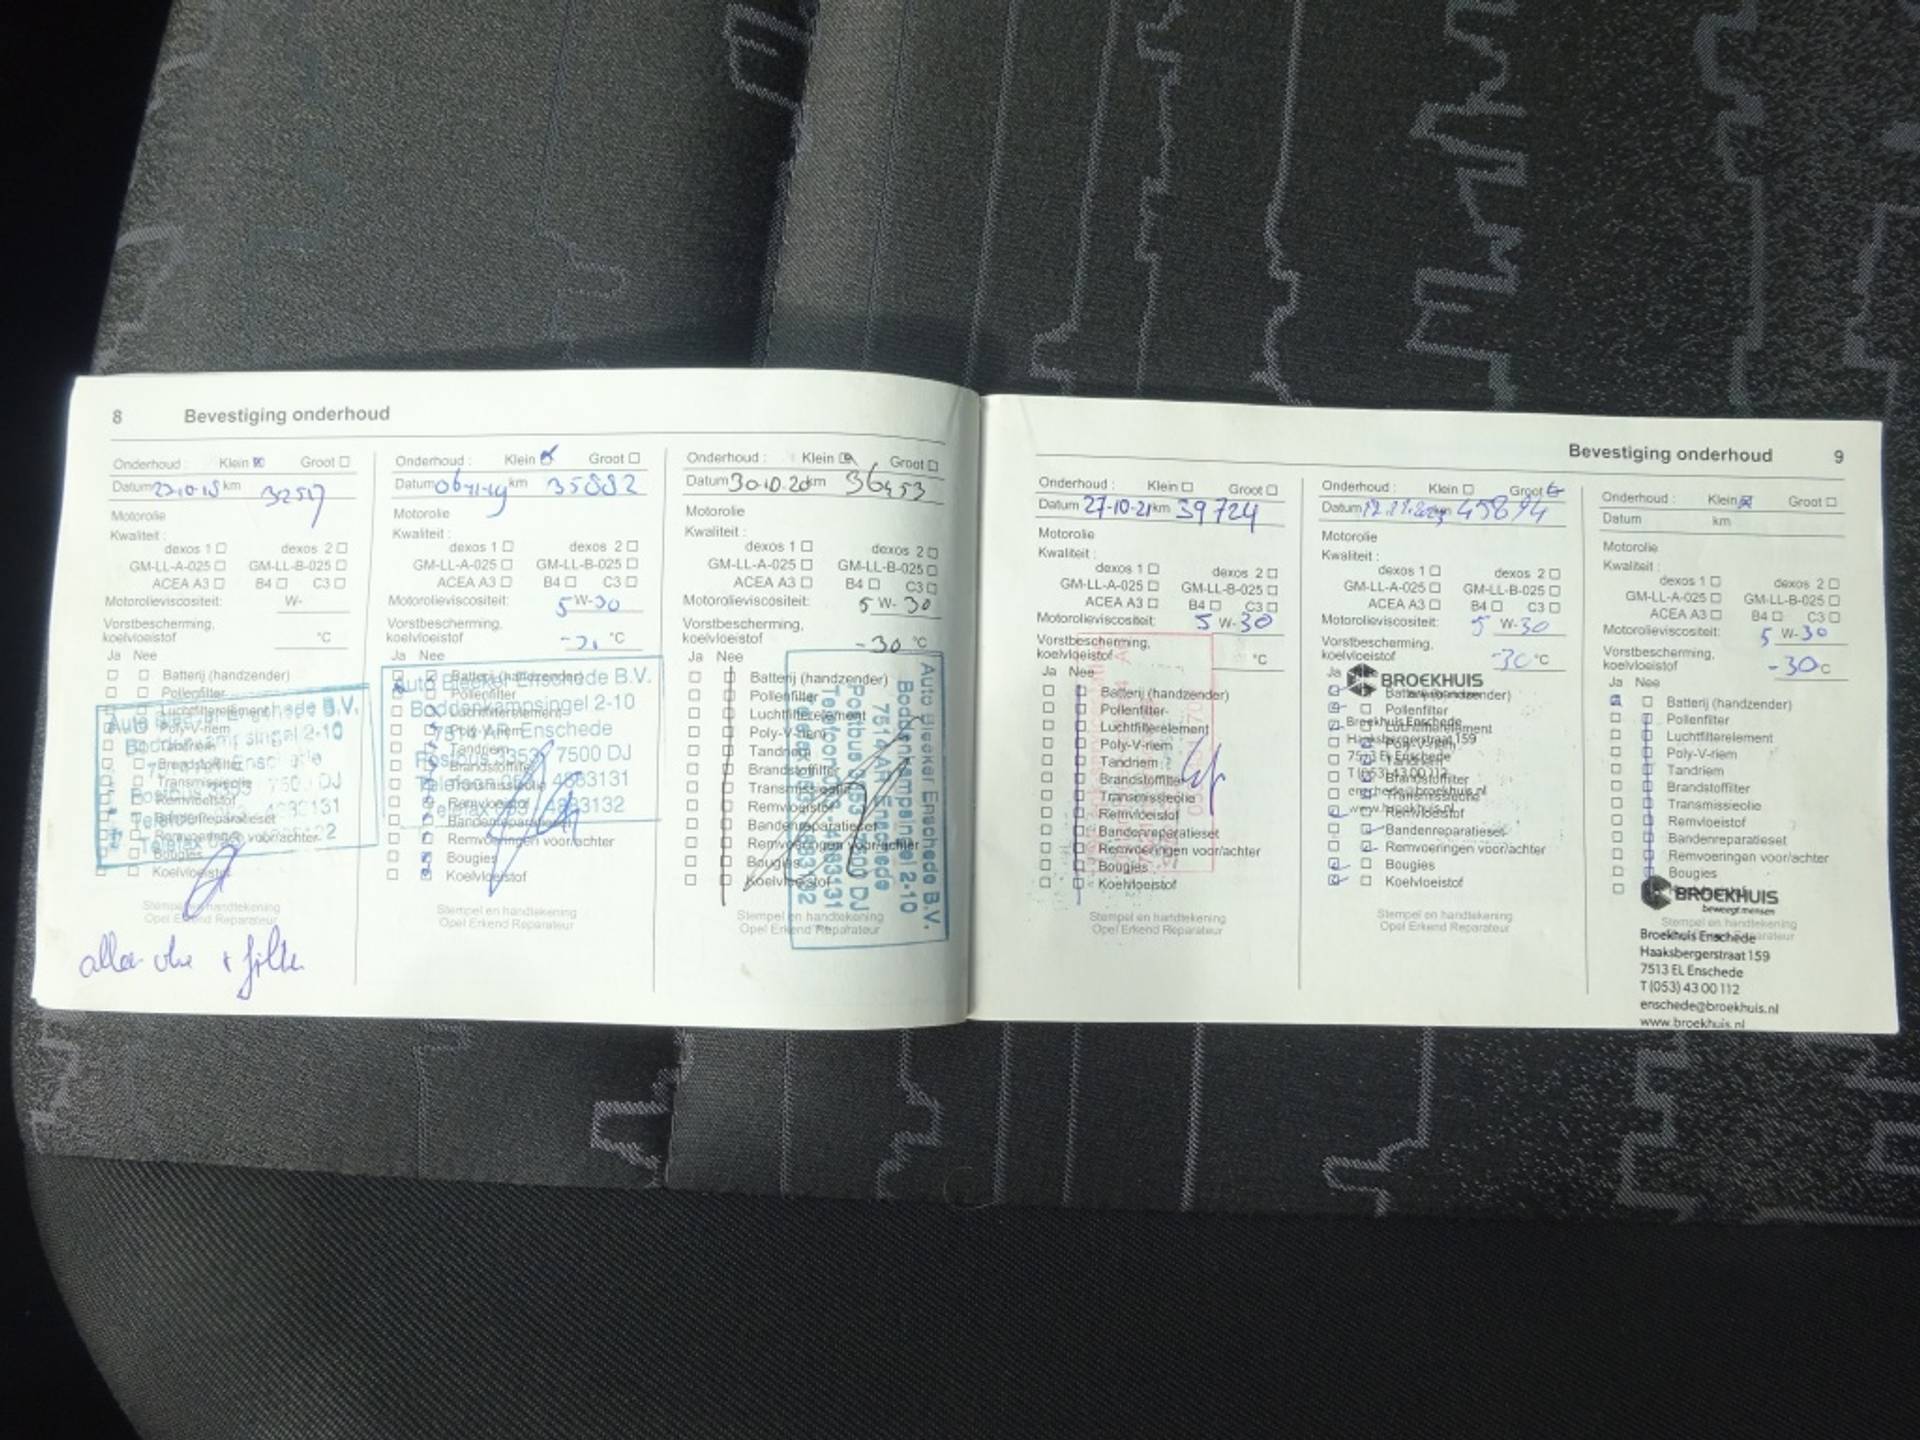 8 Bevestiging onderhoud
Onderhoud : Klein Groot
Datum km 32517
Motorolie
Kwaliteit :
dexos 1 dexos 2
GM-LL-A-025 GM-LL-B-025
ACEA A3 B4 C3
Motorolieviscositeit: W-
Vorstbescherming,
koelvloeistof °C
Ja Nee
Batterij (handzender)
Pollenfilter
Luchtfilterelement
Poly-V-riem
Tandriem
Brandstoffilter
Transmissieolie
Remvloeistof
Bandenreparatieset
Remvoeringen voor/achter
Bougies
Koelvloeistof
Stempel en handtekening
Opel Erkend Reparateur
Onderhoud : Klein Groot
Datum 06-11-19 km 35882
Motorolie
Kwaliteit :
dexos 1 dexos 2
GM-LL-A-025 GM-LL-B-025
ACEA A3 B4 C3
Motorolieviscositeit: 5 W-30
Vorstbescherming,
koelvloeistof °C
Ja Nee
Batterij (handzender)
Pollenfilter
Luchtfilterelement
Poly-V-riem
Tandriem
Brandstoffilter
Transmissieolie
Remvloeistof
Bandenreparatieset
Remvoeringen voor/achter
Bougies
Koelvloeistof
Auto Bleeker Enschede B.V.
Boddenkampsingel 2-10
7514 AR Enschede
Postbus 353 7500 DJ
Telefoon 053 - 4883131
Telefax 053 - 4883132
Stempel en handtekening
Opel Erkend Reparateur
Onderhoud : Klein Groot
Datum 30.10.20 km 36453
Motorolie
Kwaliteit :
dexos 1 dexos 2
GM-LL-A-025 GM-LL-B-025
ACEA A3 B4 C3
Motorolieviscositeit: 5 W- 30
Vorstbescherming,
koelvloeistof -30 °C
Ja Nee
Batterij (handzender)
Pollenfilter
Luchtfilterelement
Poly-V-riem
Tandriem
Brandstoffilter
Transmissieolie
Remvloeistof
Bandenreparatieset
Remvoeringen voor/achter
Bougies
Koelvloeistof
Auto Bleeker Enschede B.V.
Boddenkampsingel 2-10
7514 AR Enschede
Stempel en handtekening
Opel Erkend Reparateur
Bevestiging onderhoud 9
Onderhoud : Klein Groot
Datum 27-10-21 km 39724
Motorolie
Kwaliteit :
dexos 1 dexos 2
GM-LL-A-025 GM-LL-B-025
ACEA A3 B4 C3
Motorolieviscositeit: 5 W-30
Vorstbescherming,
koelvloeistof °C
Ja Nee
Batterij (handzender)
Pollenfilter
Luchtfilterelement
Poly-V-riem
Tandriem
Brandstoffilter
Transmissieolie
Remvloeistof
Bandenreparatieset
Remvoeringen voor/achter
Bougies
Koelvloeistof
Stempel en handtekening
Opel Erkend Reparateur
Onderhoud : Klein Groot
Datum km 45894
Motorolie
Kwaliteit :
dexos 1 dexos 2
GM-LL-A-025 GM-LL-B-025
ACEA A3 B4 C3
Motorolieviscositeit: 5 W-30
Vorstbescherming,
koelvloeistof -30 °C
Ja
BROEKHUIS
Batterij (handzender)
Pollenfilter
Luchtfilterelement
Poly-V-riem
Tandriem
Brandstoffilter
Transmissieolie
Remvloeistof
Bandenreparatieset
Remvoeringen voor/achter
Bougies
Koelvloeistof
Broekhuis Enschede
Haaksbergerstraat 159
7513 EL Enschede
T (053) 43 00 112
enschede@broekhuis.nl
www.broekhuis.nl
Stempel en handtekening
Opel Erkend Reparateur
Onderhoud : Klein Groot
Datum km
Motorolie
Kwaliteit :
dexos 1 dexos 2
GM-LL-A-025 GM-LL-B-025
ACEA A3 B4 C3
Motorolieviscositeit: 5 W-30
Vorstbescherming,
koelvloeistof -30 °C
Ja Nee
Batterij (handzender)
Pollenfilter
Luchtfilterelement
Poly-V-riem
Tandriem
Brandstoffilter
Transmissieolie
Remvloeistof
Bandenreparatieset
Remvoeringen voor/achter
Bougies
BROEKHUIS
beweegt mensen
Stempel en handtekening
Broekhuis Enschede
Haaksbergerstraat 159
7513 EL Enschede
T (053) 43 00 112
enschede@broekhuis.nl
www.broekhuis.nl